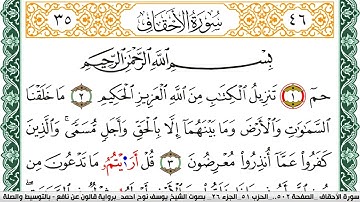 ٣٥ سُورَةُ الأَحْقَافِ ٤٦
بِسْمِ اللَّهِ الرَّحْمَٰنِ الرَّحِيمِ
حمٓ ١ تَنزِيلُ الْكِتَٰبِ مِنَ اللَّهِ الْعَزِيزِ الْحَكِيمِ ٢ مَا خَلَقْنَا
السَّمَٰوَٰتِ وَالْأَرْضَ وَمَا بَيْنَهُمَا إِلَّا بِالْحَقِّ وَأَجَلٍ مُّسَمًّى وَالَّذِينَ
كَفَرُوا عَمَّا أُنذِرُوا مُعْرِضُونَ ٣ قُلْ أَرَٰيْتُم مَّا تَدْعُونَ مِن
سورة الأحقاف - الصفحة ٥٠٢ ... الحزب ٥١ الجزء ٢٦ - بصوت الشيخ يوسف نوح احمد برواية قالون عن نافع - بالتوسيط والصلة